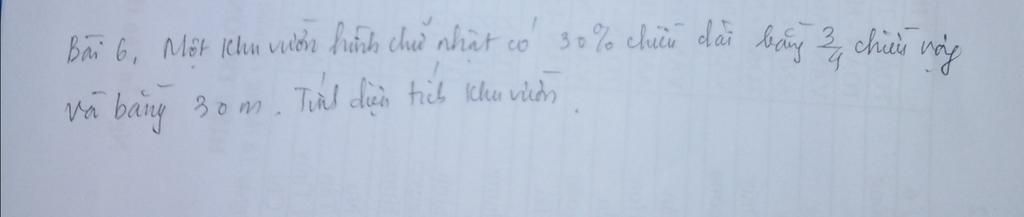 Bài 6, Một khu vườn hình chữ nhật có 30% chiều dài bằng 3/4 chiều rộng
và bằng 30 m. Tính diện tích khu vườn.